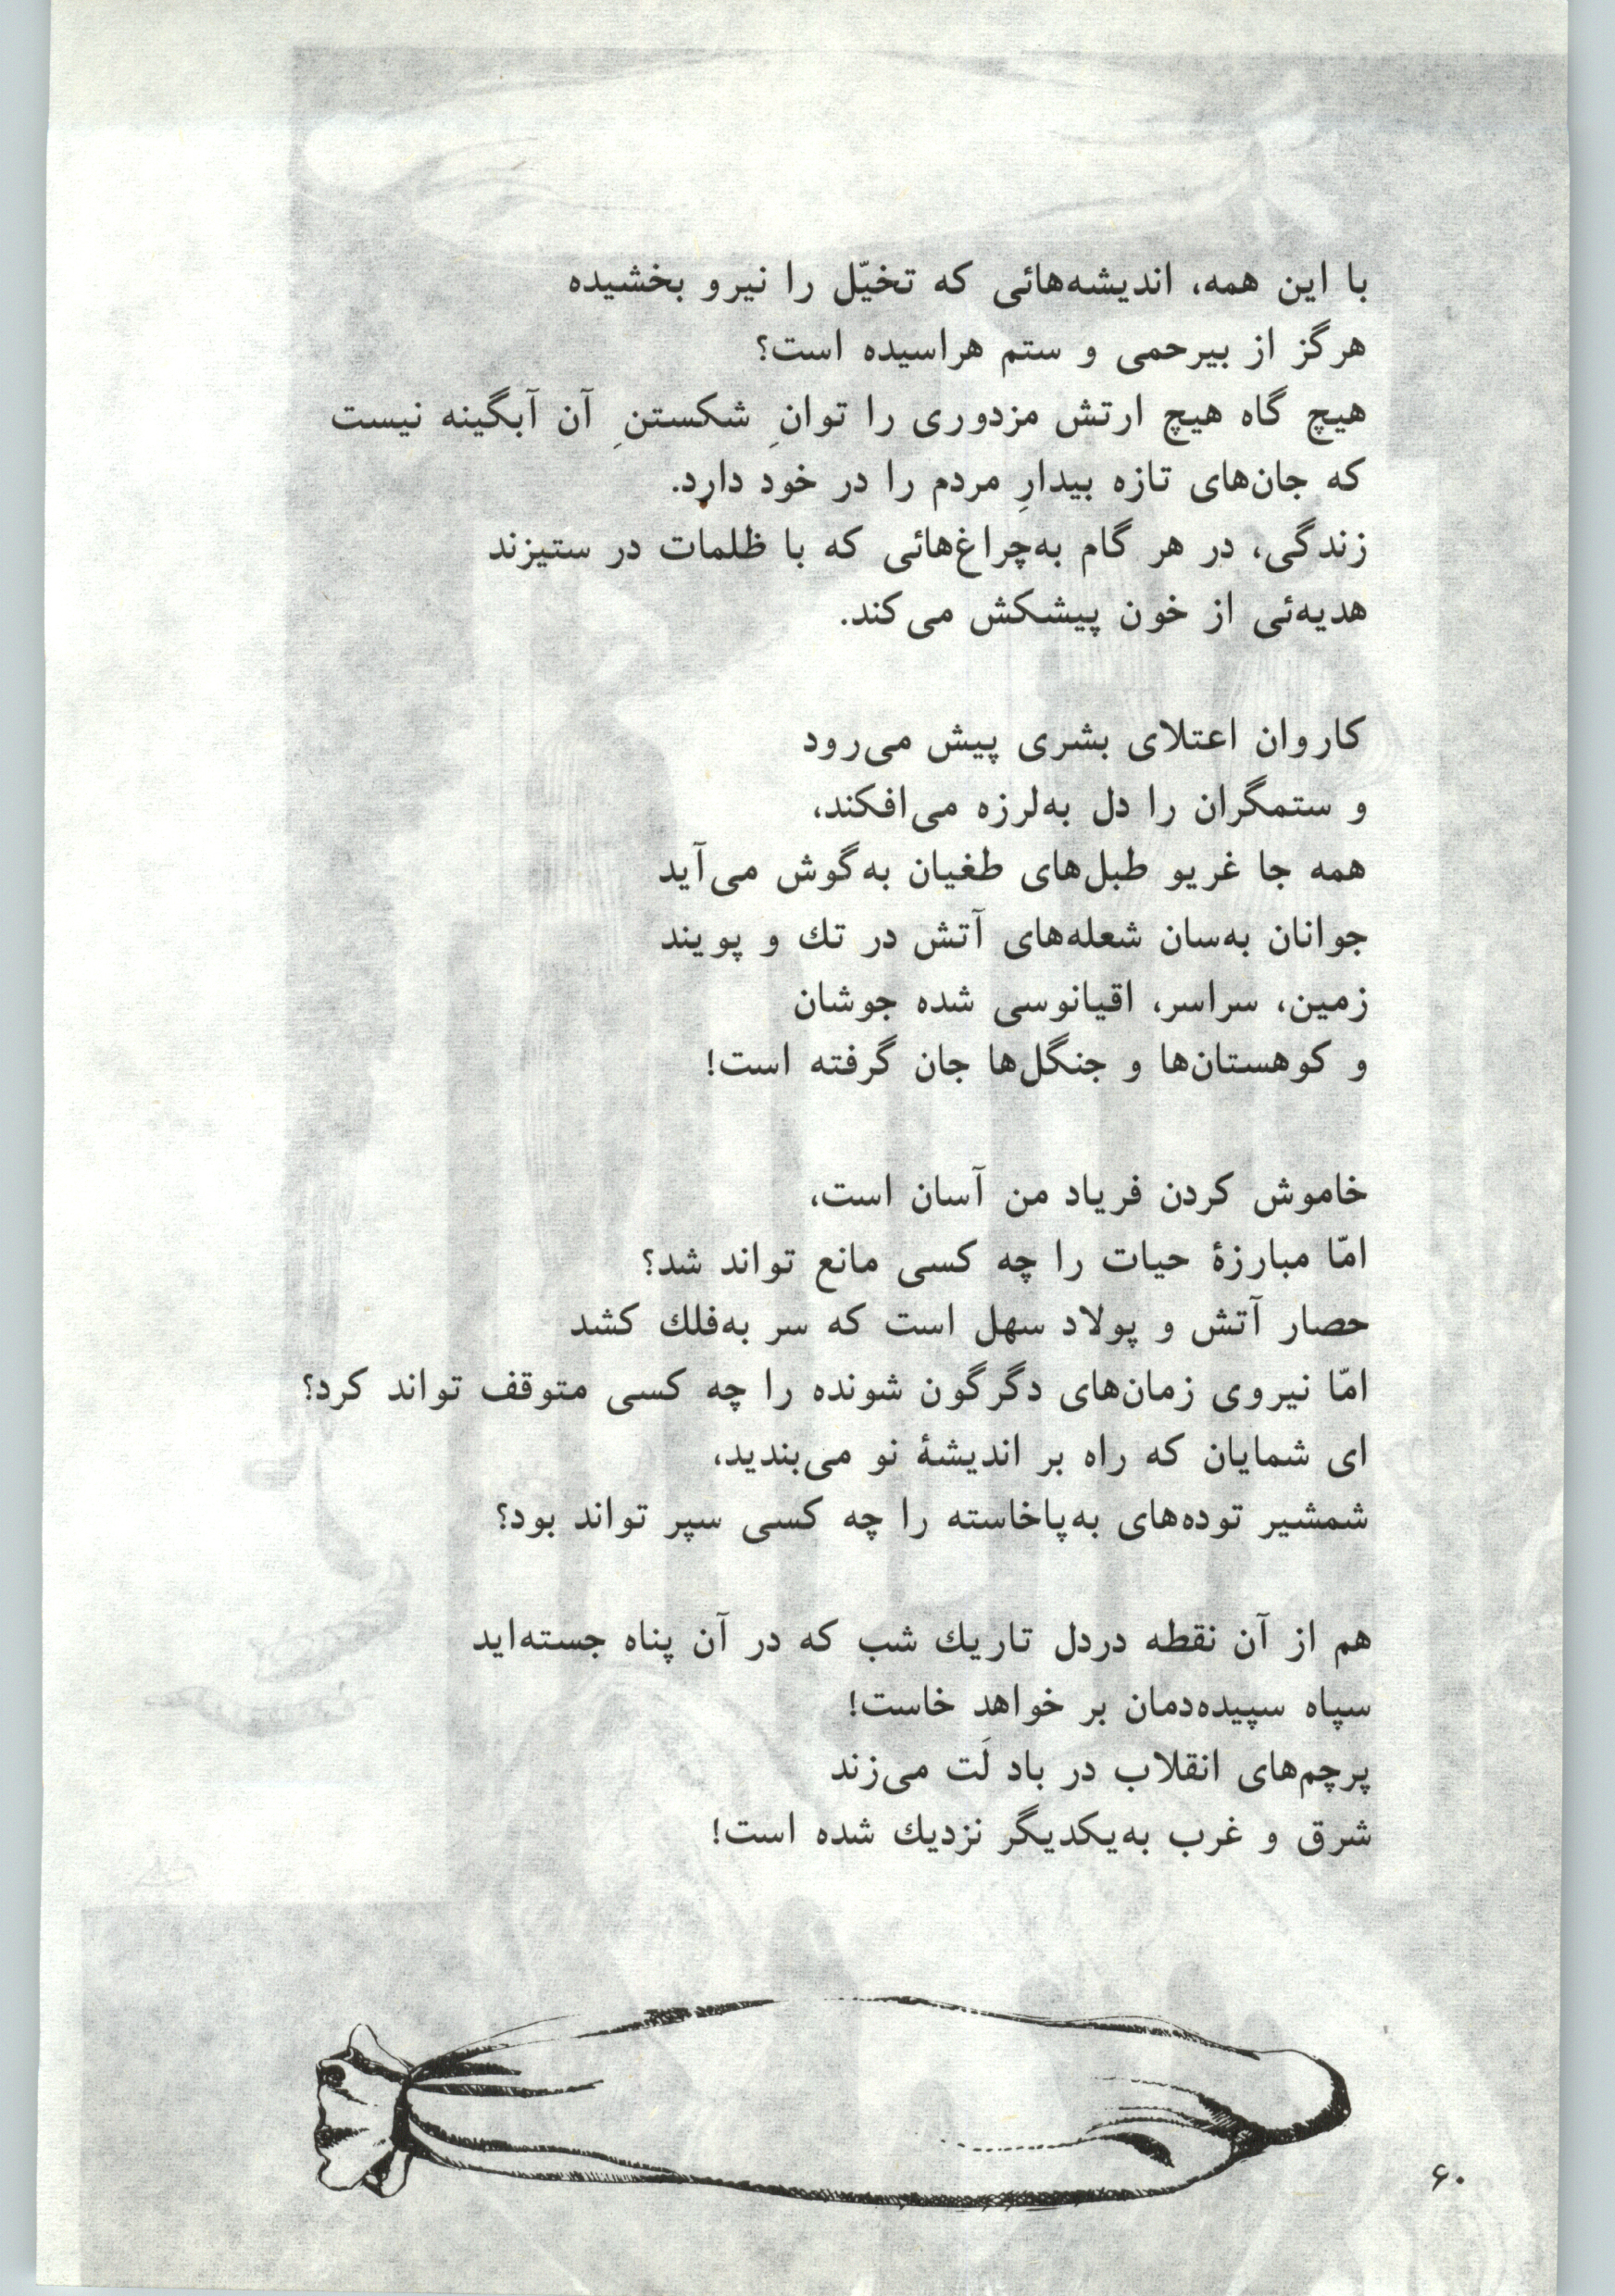 با این همه، اندیشه‌هائی که تخیّل را نیرو بخشیده
هرگز از بیرحمی و ستم هراسیده است؟
هیچ گاه هیچ ارتش مزدوری را توانِ شکستنِ آن آبگینه نیست
که جان‌های تازه بیدارِ مردم را در خود دارد.
زندگی، در هر گام به‌چراغ‌هائی که با ظلمات در ستیزند
هدیه‌ئی از خون پیشکش می‌کند.
کاروان اعتلای بشری پیش می‌رود
و ستمگران را دل به‌لرزه می‌افکند،
همه جا غریو طبل‌های طغیان به‌گوش می‌آید
جوانان به‌سان شعله‌های آتش در تك و پویند
زمین، سراسر، اقیانوسی شده جوشان
و کوهستان‌ها و جنگل‌ها جان گرفته است!
خاموش کردن فریاد من آسان است،
امّا مبارزهٔ حیات را چه کسی مانع تواند شد؟
حصار آتش و پولاد سهل است که سر به‌فلك کشد
امّا نیروی زمان‌های دگرگون شونده را چه کسی متوقف تواند کرد؟
ای شمایان که راه بر اندیشهٔ نو می‌بندید،
شمشیر توده‌های به‌پاخاسته را چه کسی سپر تواند بود؟
هم از آن نقطه دردل تاریك شب که در آن پناه جسته‌اید
سپاه سپیده‌دمان بر خواهد خاست!
پرچم‌های انقلاب در باد لَت می‌زند
شرق و غرب به‌یکدیگر نزدیك شده است!
۶۰